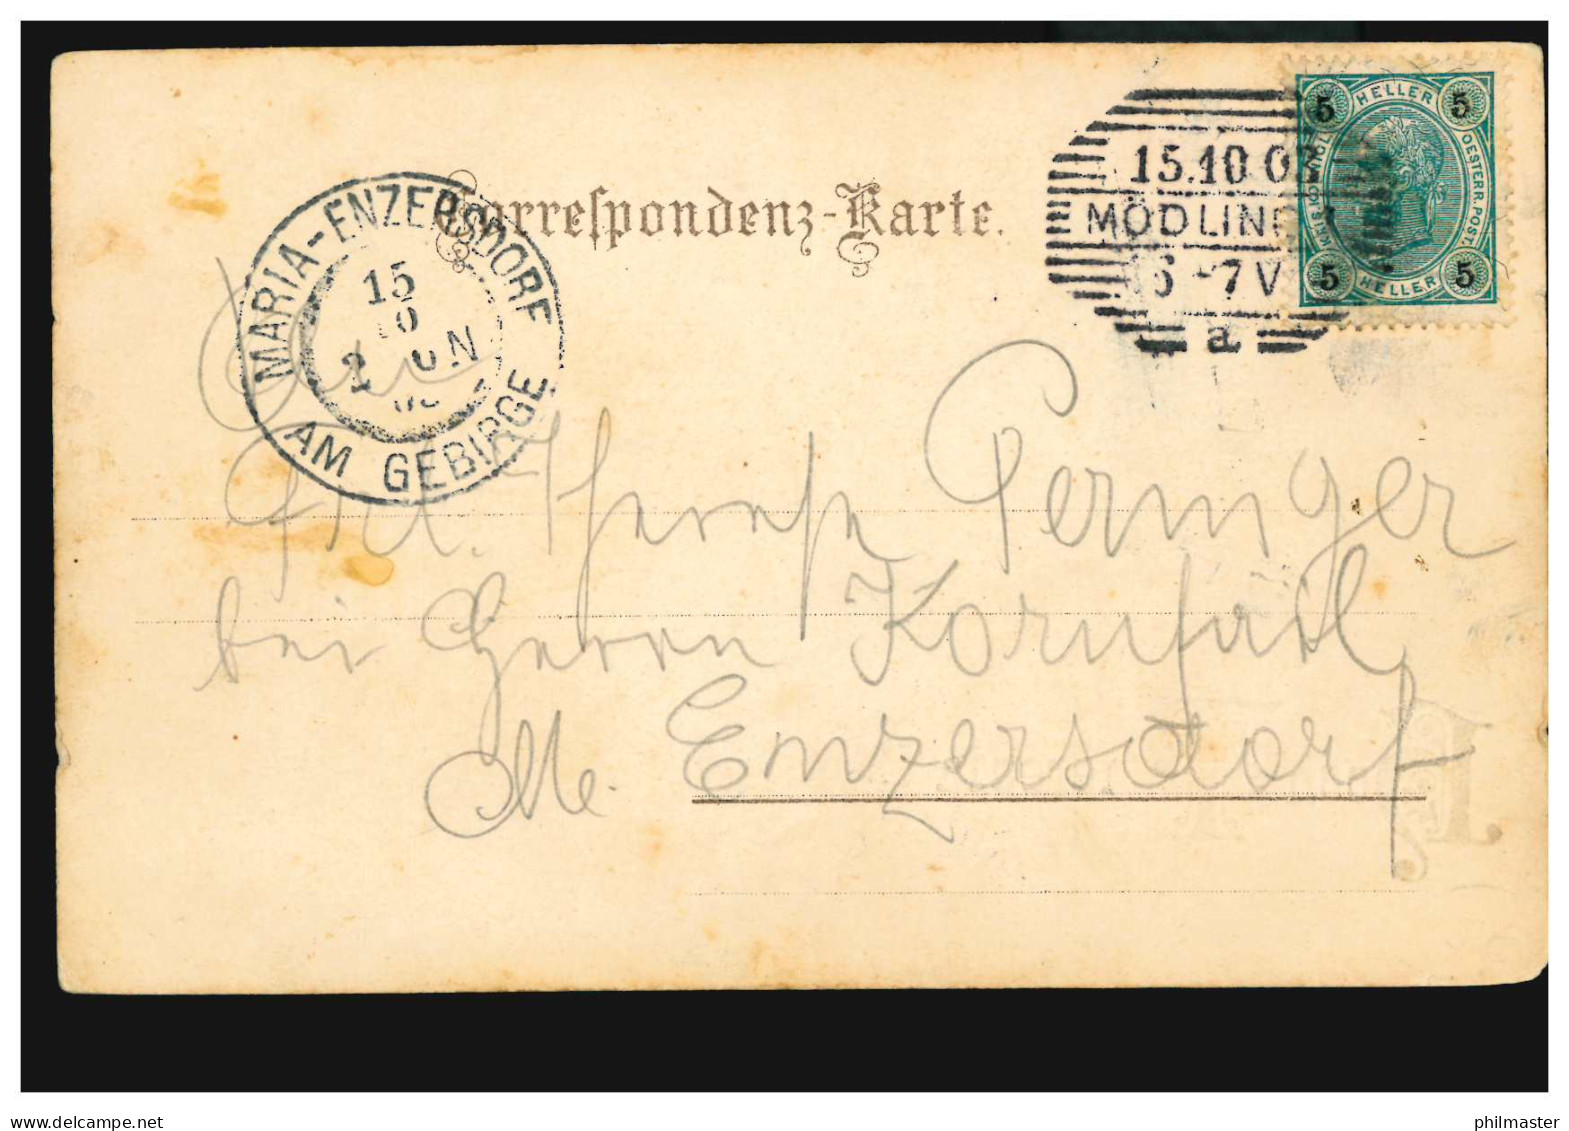 Correspondenz-Karte.
MARIA-ENZERSDORF
AM GEBIRGE
15
10
15.10 02
MÖDLING
6-7 V
a
5 HELLER 5
KAIS. KÖNIGL.
OESTERR. POST.
5 HELLER 5
An
Frl. Therese Peringer
bei Herrn Kornfeil
M. Enzersdorf
www.delcampe.net
philmaster